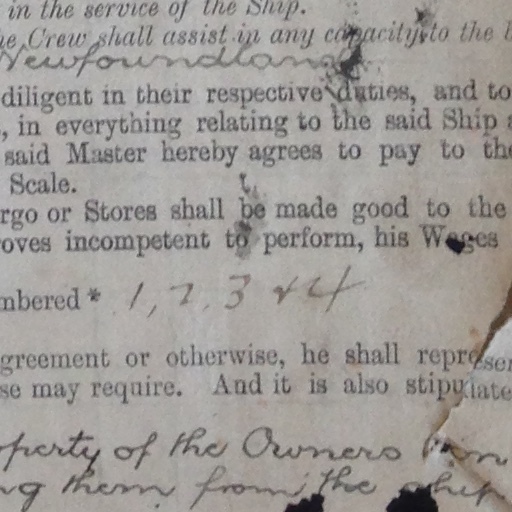 in the service of the Ship.
e Crew shall assist in any capacity to the b
Newfoundland
diligent in their respective duties, and to
, in everything relating to the said Ship a
said Master hereby agrees to pay to the
Scale.
rgo or Stores shall be made good to the
oves incompetent to perform, his Wages
mbered * 1, 2, 3 & 4
greement or otherwise, he shall represen
se may require. And it is also stipulate
operty of the Owners
ng them from the ship